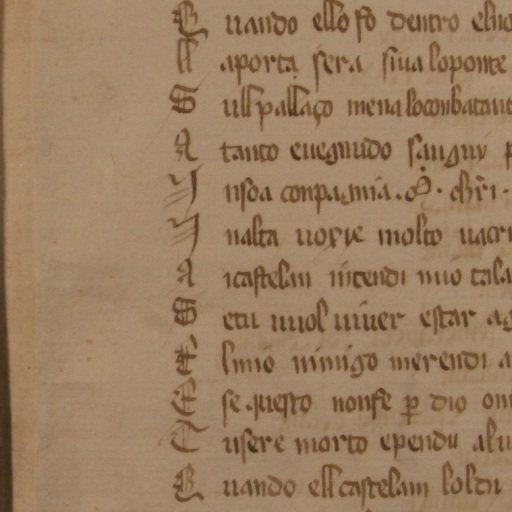 Q uando ello fo dentro elno
L aporta sera siua loponte
S ull pallaço mena loconbatant
A tanto euegnudo sanguy
I nsoa conpagnia
I nalta uoxie molto
A icastelan intendi mio tala
S etu uuol uiuer estar ag
E lmio nimigo merendi a
E se questo nonfe ꝑ dio om
T usere morto ependu alu
Q uando ell castelam loldi